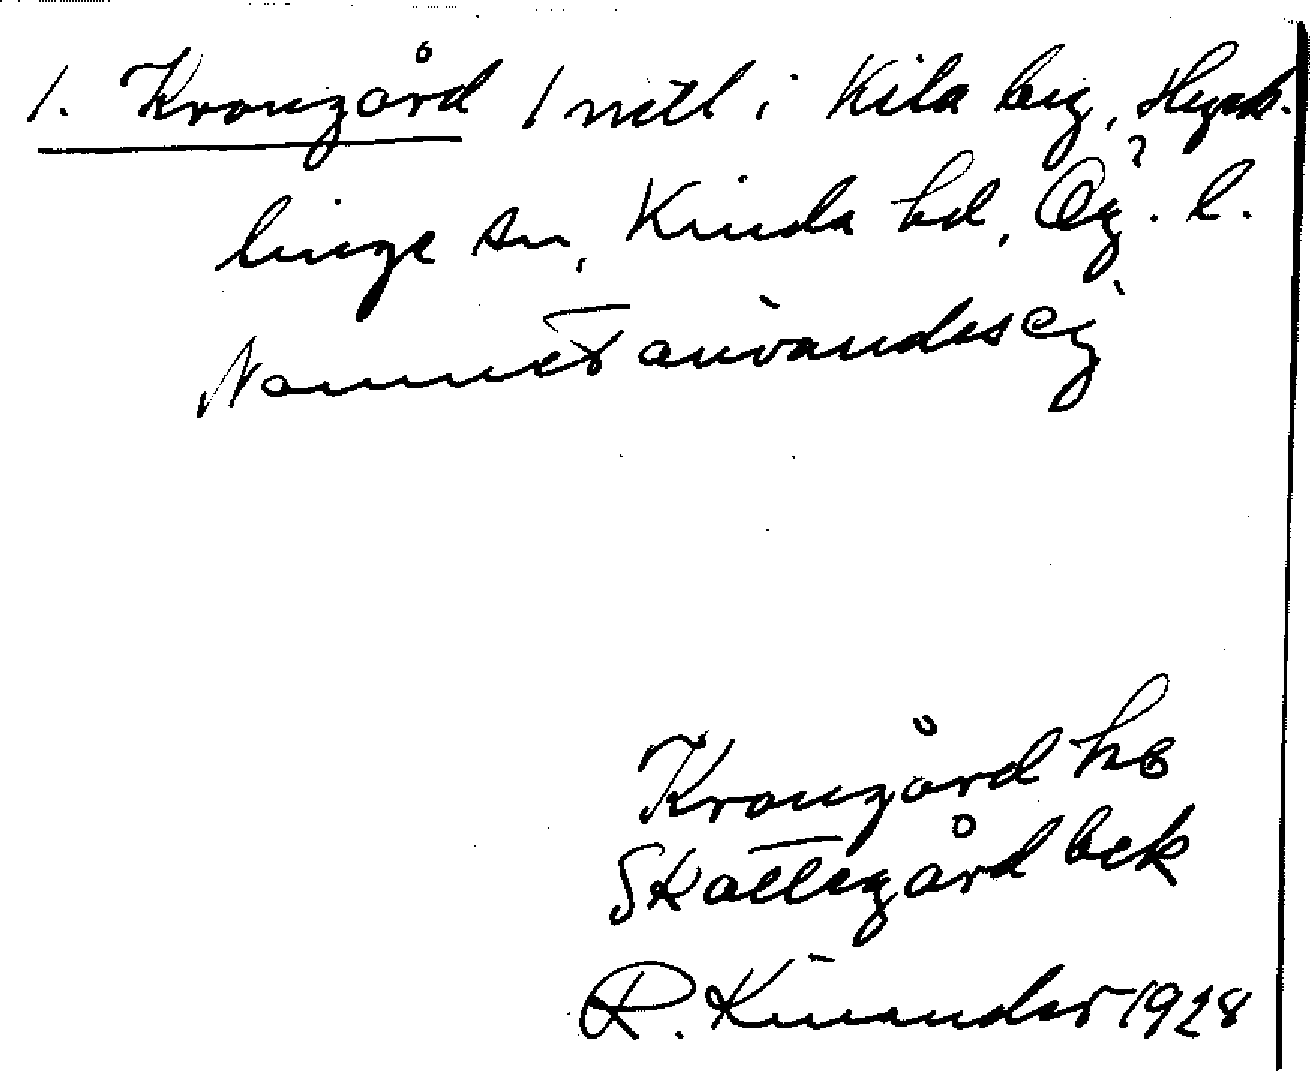 1. Krongård 1 mtl i Kila by, Hyck-
linge sn, Kinda hd, Ög. l.
Namnet användes ej
Krongård hs
Skattegård bek
R. Kinander 1928